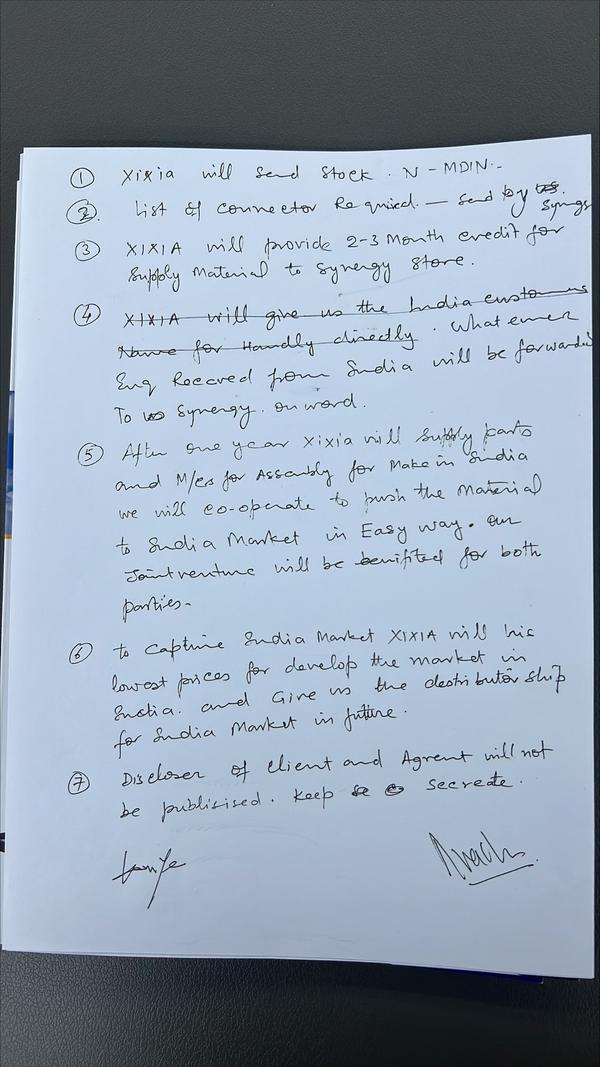 ① Xixia will send stock. N - MDIN.-
②. List of connector Required. — send by Synergy
③ XIXIA will provide 2-3 Month credit for
Supply Material to Synergy Store.
④ XIXIA will give us the India customers
Name for Handly directly. Whatever
Enq Receved from India will be forwarded
To Synergy. onword.
⑤ After one year Xixia will supply parts
and M/cs for Assembly for Make in India
we will co-operate to push the Material
to India Market in Easy way. our
Joint venture will be benifited for both
parties.
⑥ to capture India Market XIXIA will his
lowest prices for develop the market in
India. and Give us the destributor ship
for India Market in future.
⑦ Discloser of client and Agrent will not
be publisised. Keep secreate.